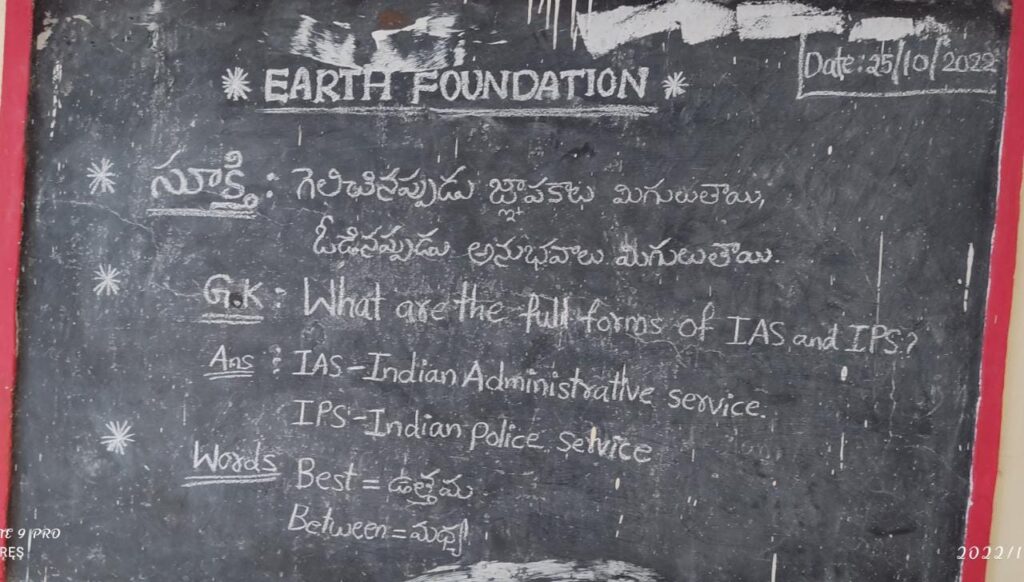 * EARTH FOUNDATION *
Date: 25/10/2022
* సూక్తి : గెలిచినప్పుడు జ్ఞాపకాలు మిగులుతాయి,
ఓడినప్పుడు అనుభవాలు మిగులుతాయి.
* G.K : What are the full forms of IAS and IPS?
Ans : IAS - Indian Administrative service.
IPS - Indian police service
* Words Best = ఉత్తమ
Between = మధ్య
9 PRO
2022/1